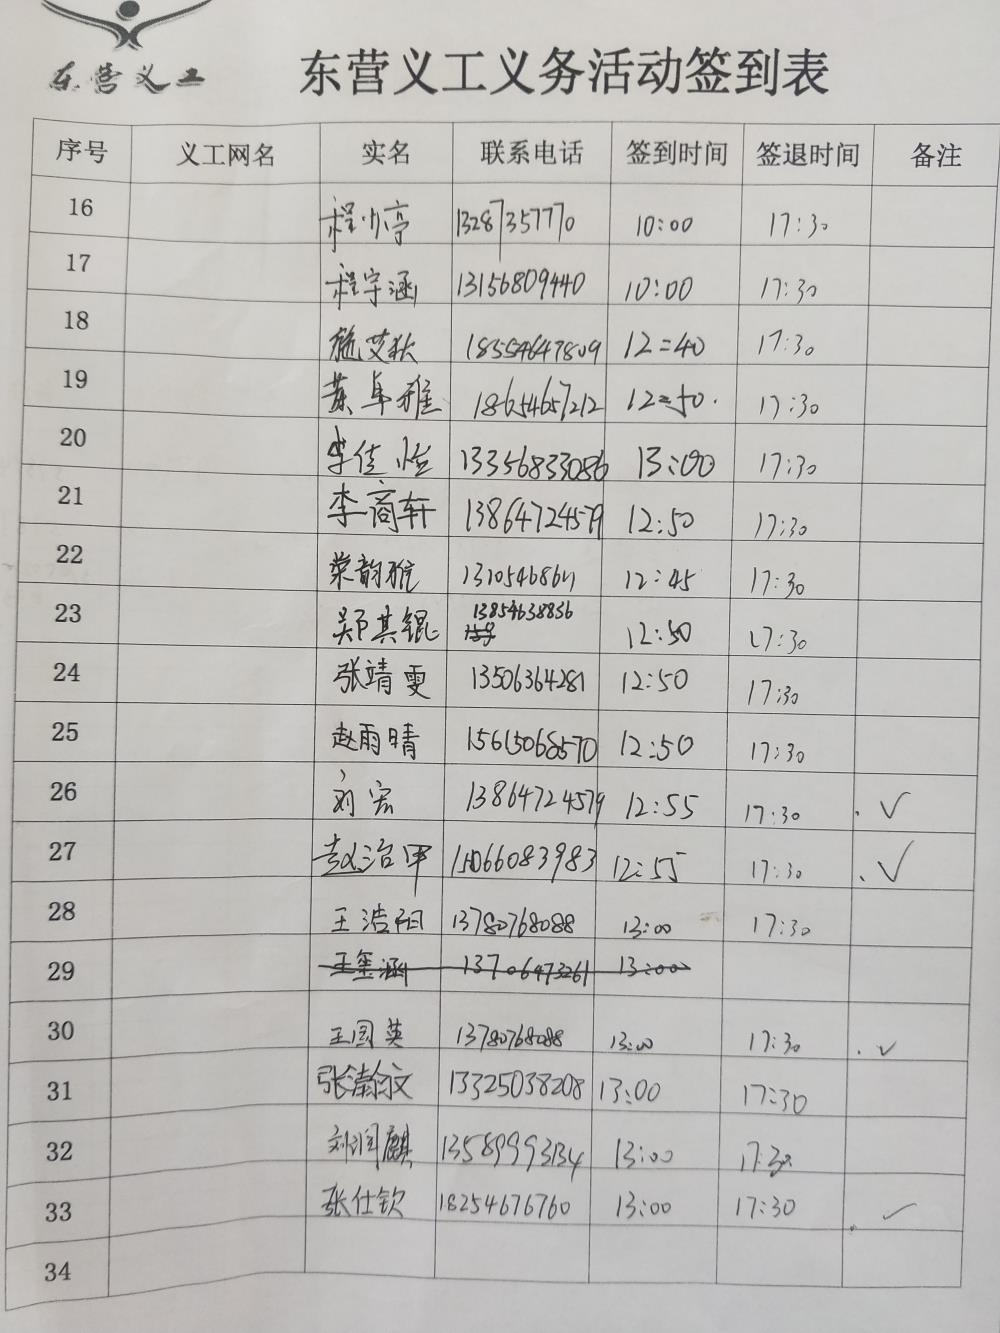 东营义工
东营义工义务活动签到表
序号 义工网名 实名 联系电话 签到时间 签退时间 备注
16 程小亭 13287357770 10:00 17:30
17 程宇涵 13156809440 10:00 17:30
18 艾狄 18554647809 12:40 17:30
19 黄卓雅 18654657212 12:50 17:30
20 李佳恒 13356833086 13:00 17:30
21 李商轩 13864724579 12:50 17:30
22 荣韵 12:45 17:30
23 郑其锟 13854638836 12:50 17:30
24 张靖雯 13506364281 12:50 17:30
25 赵雨晴 15615068570 12:50 17:30
26 刘宏 13864724579 12:55 17:30 ✓
27 赵治军 15066083983 12:55 17:30 ✓
28 王浩阳 13780768088 13:00 17:30
29 王玺涵 13706473261 13:00
30 王国英 13780768088 13:00 17:30 ✓
31 张瀚文 13325038208 13:00 17:30
32 刘润麒 13589993134 13:00 17:30
33 张仕钦 18254676760 13:00 17:30 ✓
34